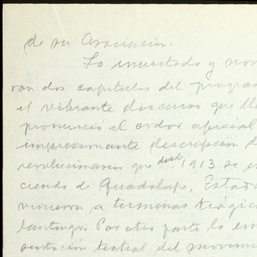 de su Asociación.
Lo inusitado y nove
ron dos capítulos del progra
el vibrante discurso que
pronunció el orador oficial
impresionante descripcion d
revolucionarios que desde 1913 se
ciendo de Guadalupe, Estad
vinieron a terminar trágic
Por otra parte la
sentación teatral del movimien